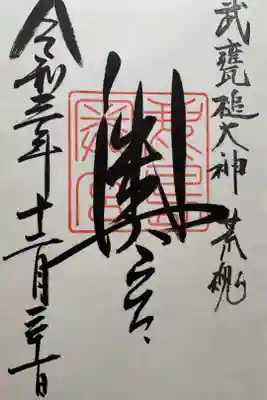 武甕槌大神 荒魂
奥宮
令和三年十二月三十日